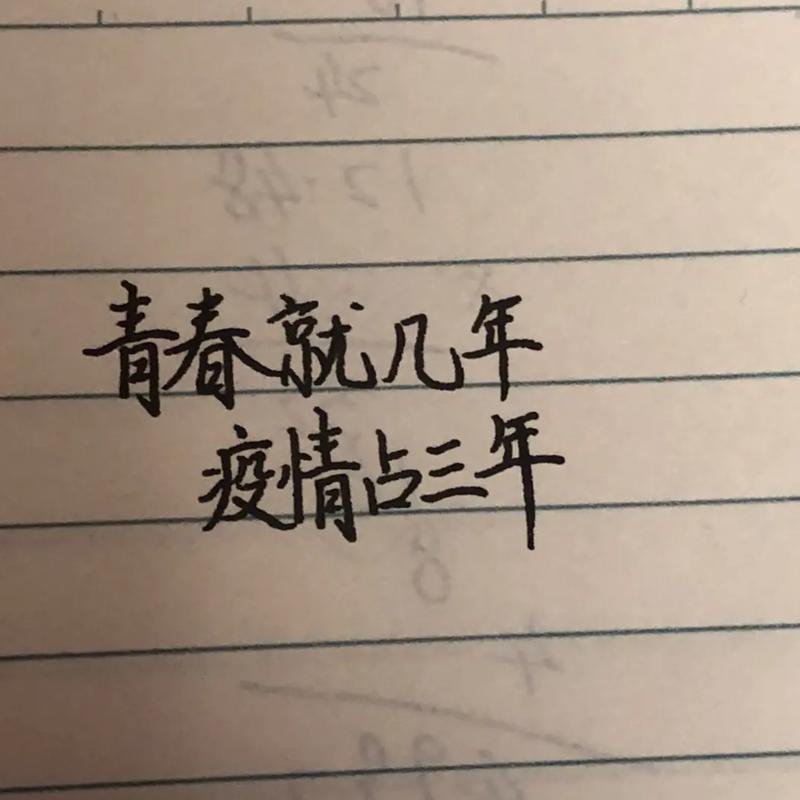 青春就几年
疫情占三年